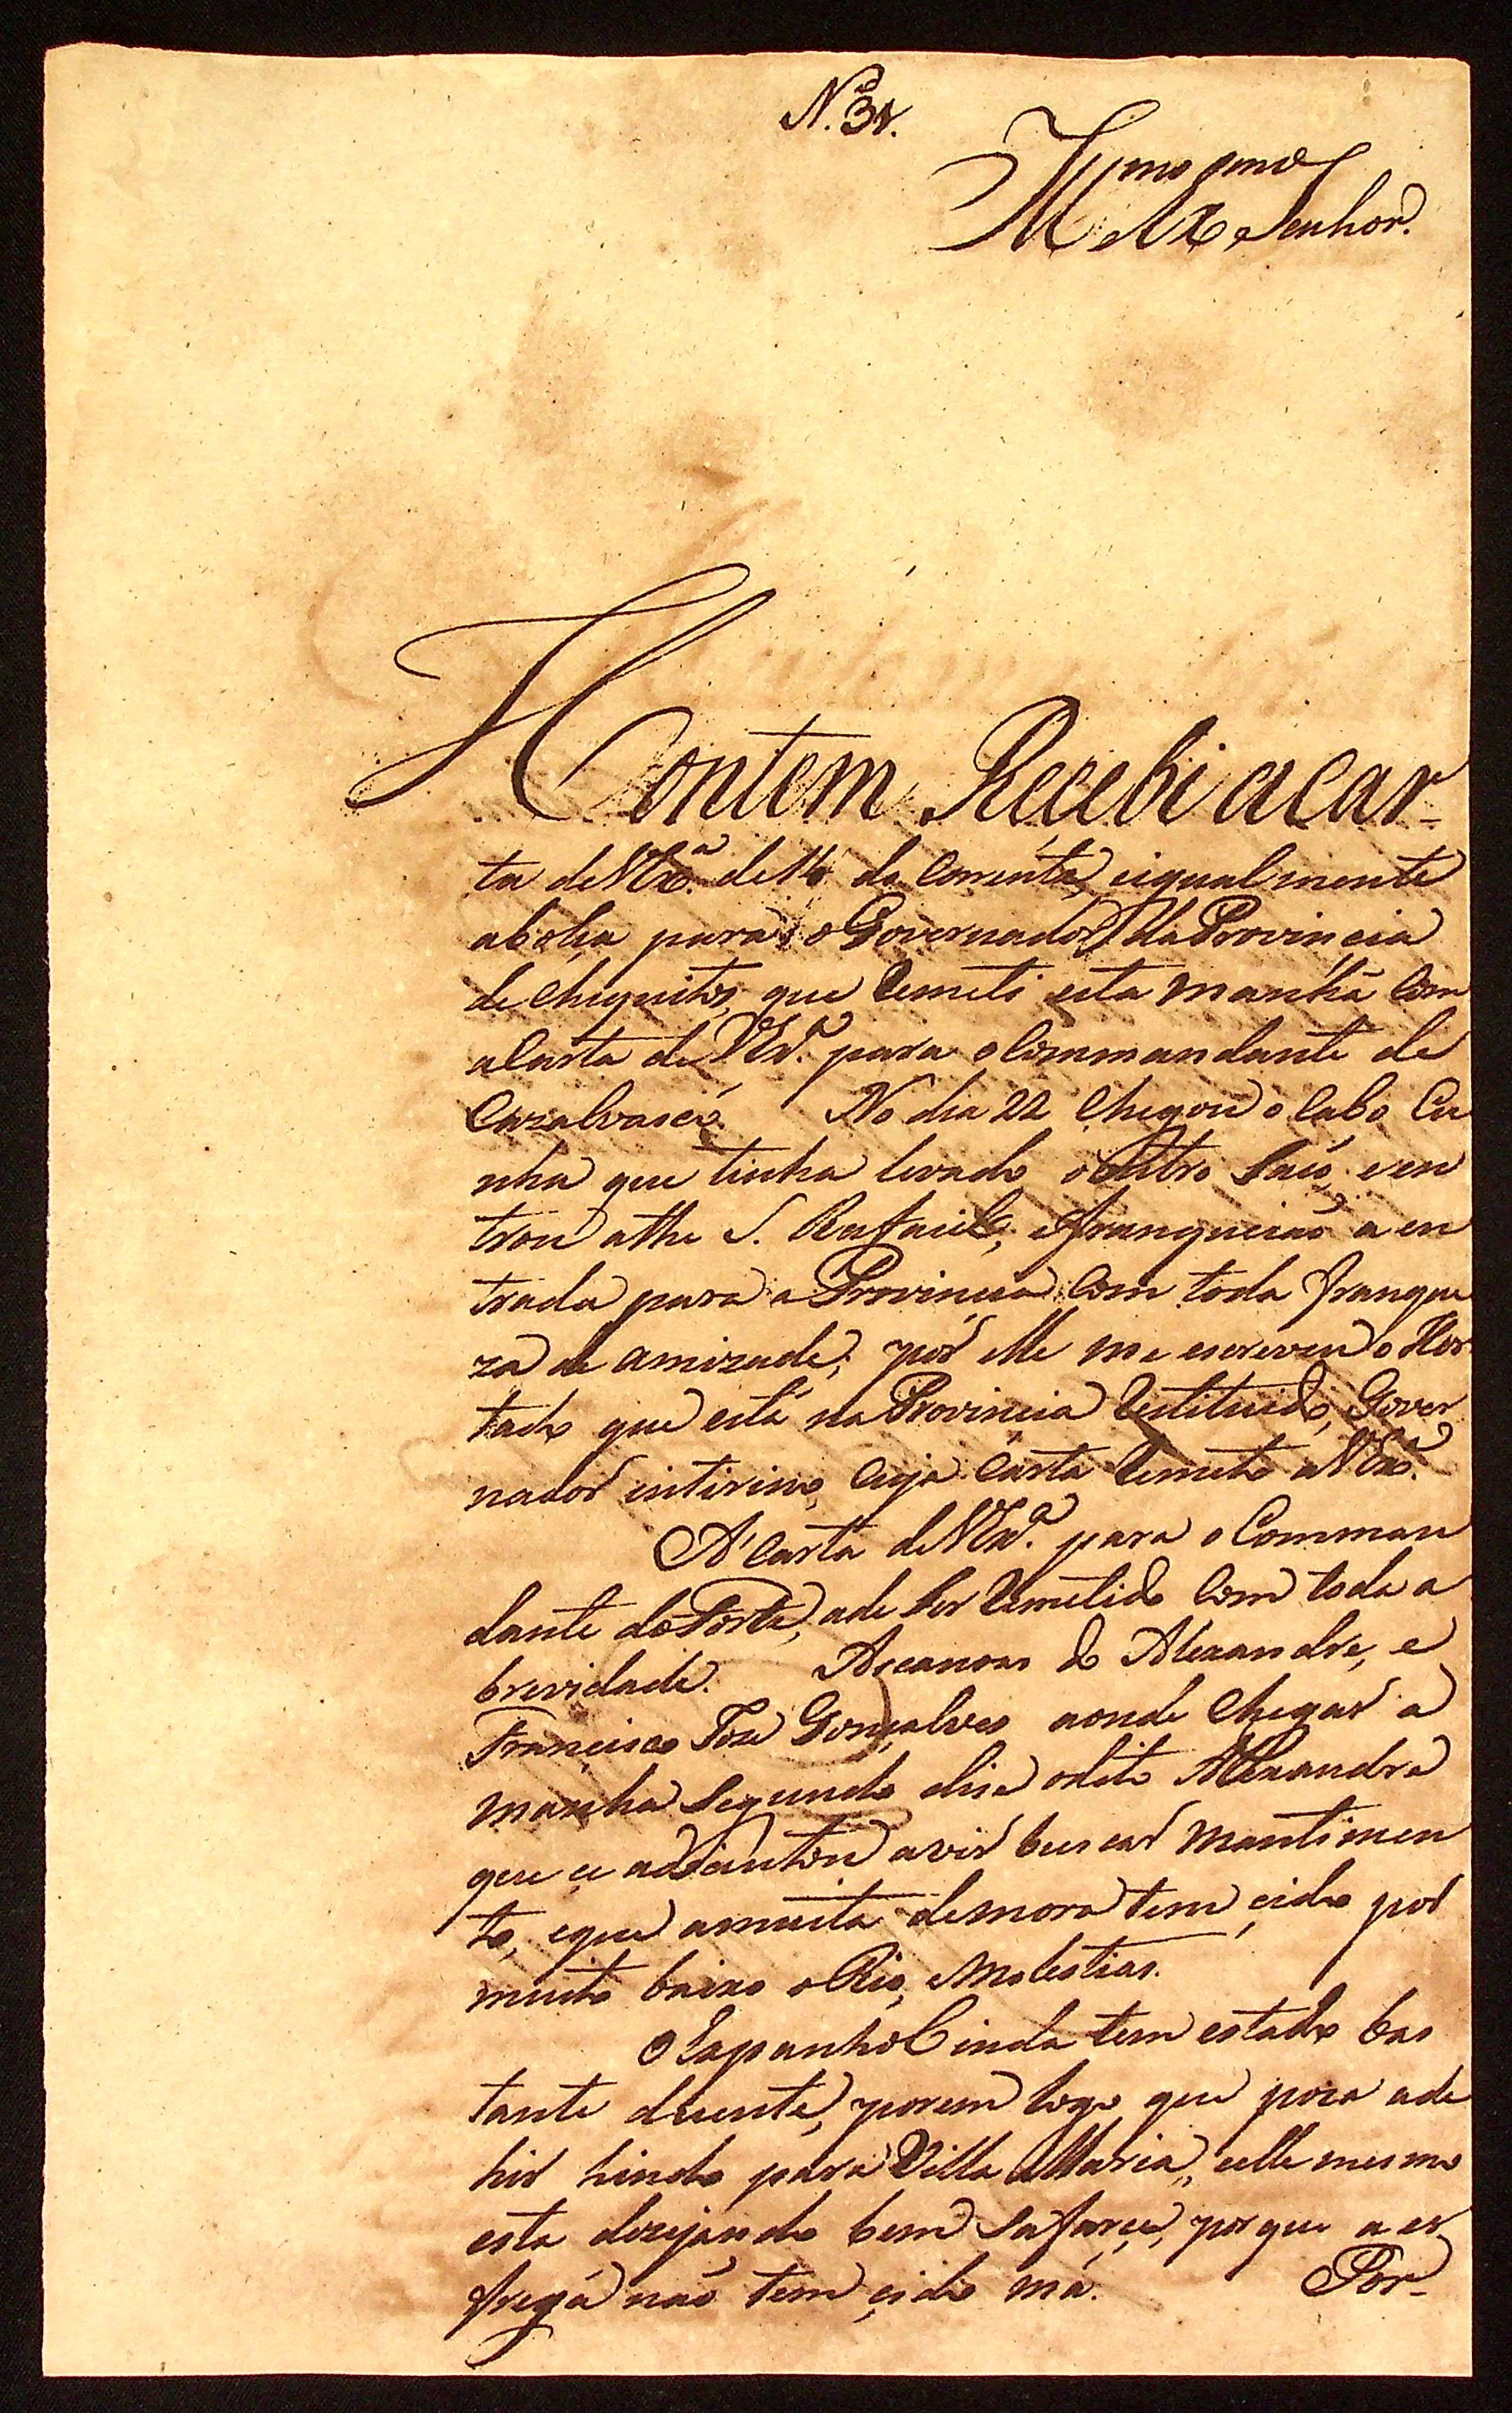 N. 38.
Illmo Exmo Senhor.
Hontem Recebi a Car-
ta de VExa. de 14 do Corrente, eigualmente
abolça para o Governador da Provincia
de Chiquitos, que Remeti esta manhã Com
aCarta de VExa. para oCommandante de
Cazalvasco. No dia 22 Chegou o Cabo Cu
nha que tinha levado o outro Saco, e en
trou athe S. Rafaiel, efranqueião a en
trada para a Provincia Com toda franque
za de amizade; por elle me escreveu o Hur
tado que está na Provincia Restituido, Gover
nador intirino, Cuja Carta Remeto aVExa.
A' Carta de VExa. para o Comman
dante do Forte, ade Ser Remetido Com toda a
brevidade. As canoas do Alexandre, e
Francisco Joze Gonçalves aonde Chegar a
manha Segundo dise odito Alexandre
que ce adeantou avir buscar Mantimen
to, eque amuita demora tem cido por
muito baixo oRio, eMolestias.
OEspanhol inda tem estado bas
tante duente, porem logo que posa ade
hir hindo para Villa Maria, eelle mesmo
esta dezejando bem Safarçe, porque a es
frega não tem cido má. Por-